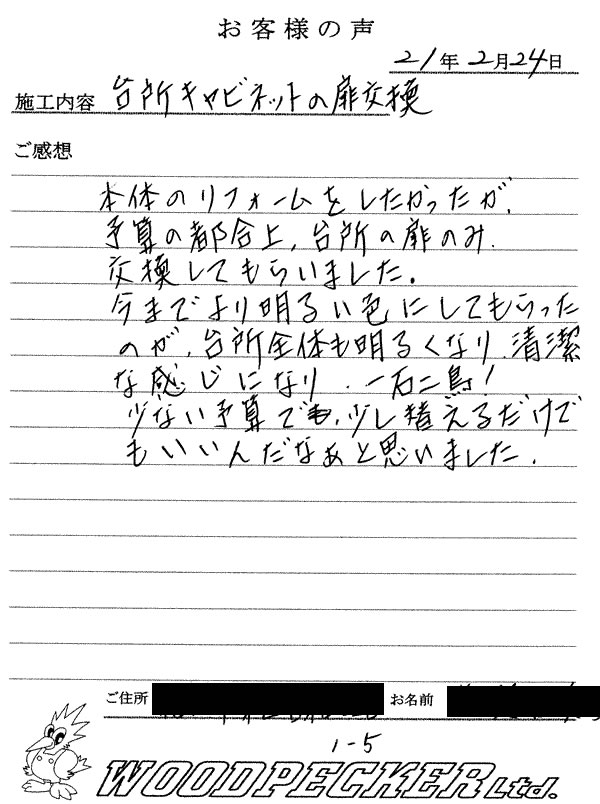 お客様の声
21年2月24日
施工内容 台所キャビネットの扉交換
ご感想
本体のリフォームをしたかったが、
予算の都合上、台所の扉のみ、
交換してもらいました。
今までより明るい色にしてもらった
のが、台所全体も明るくなり、清潔
な感じになり、一石二鳥！
少ない予算でも、少し替えるだけで
もいいんだなぁと思いました。
ご住所 お名前
1-5
WOODPECKER Ltd.